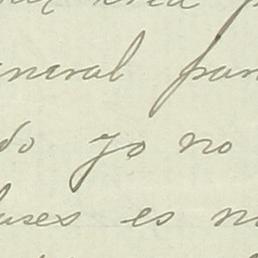 neral fran
do yo no
uses es m